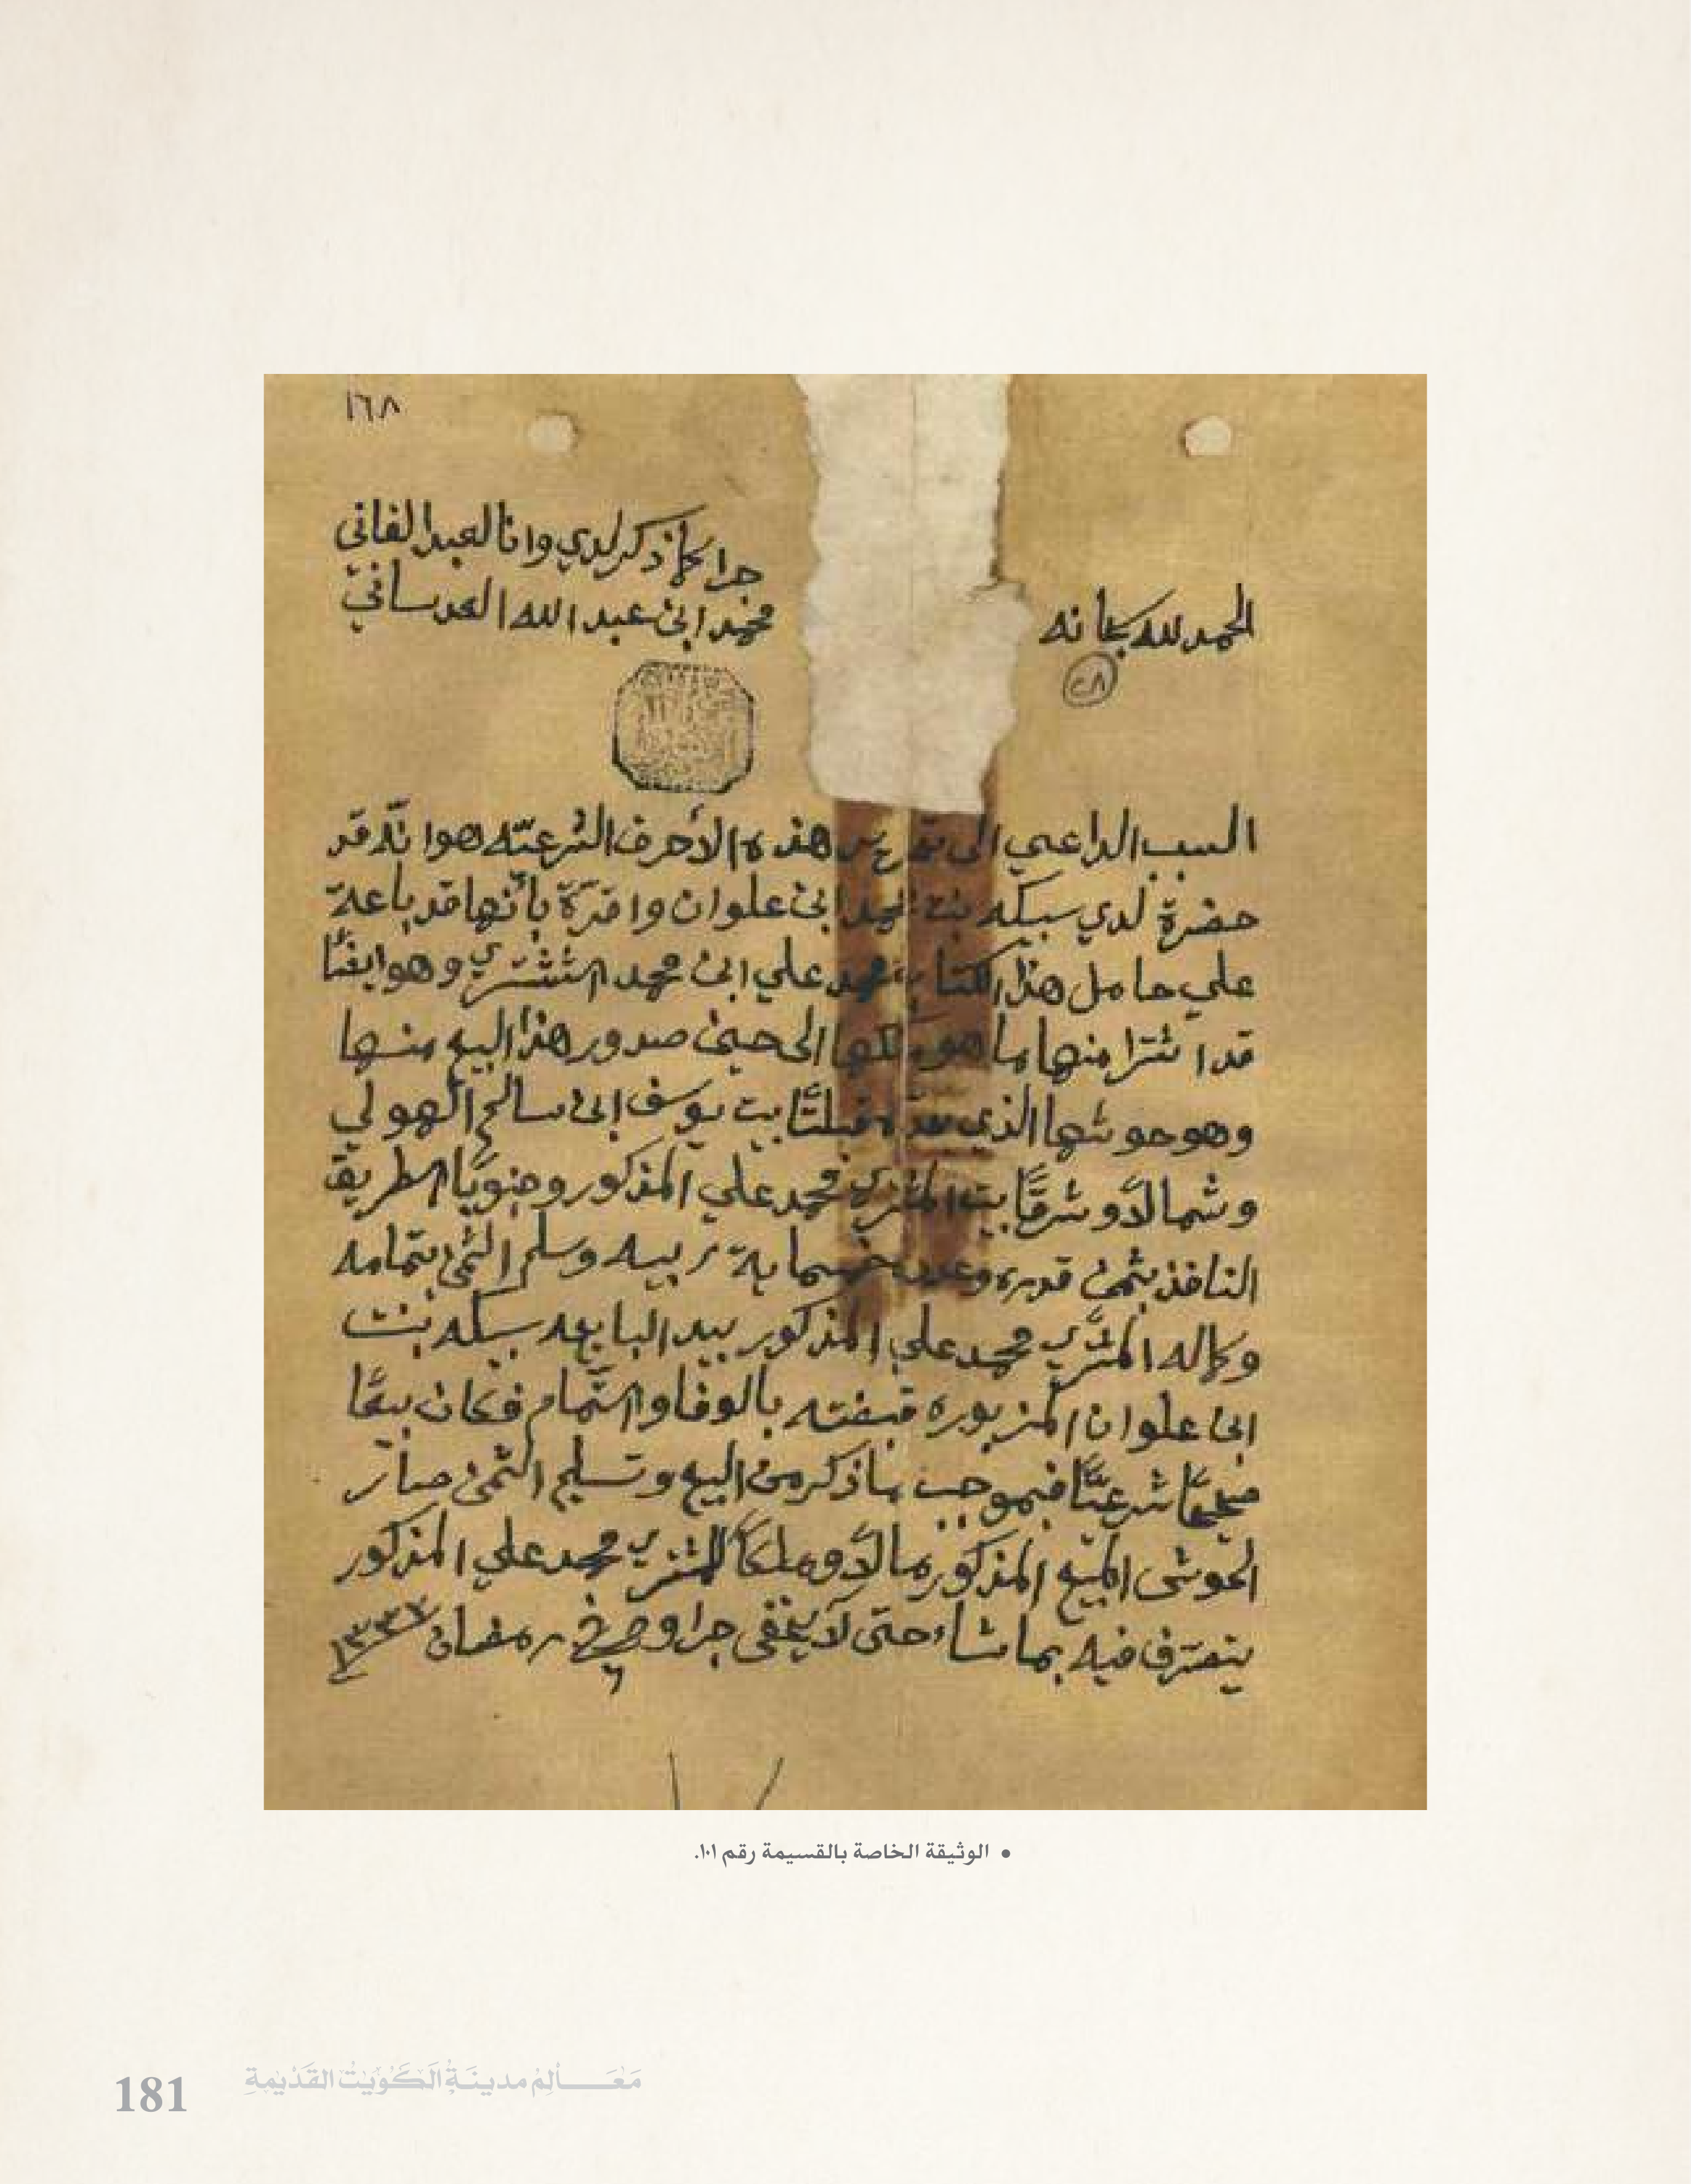 ١٦٨
الحمد لله سبحانه
٢٨
جرا كما ذكر لدي وانا العبد الفاني
محمد ابن عبد الله العدساني
السبب الداعي الى تحرير هذه الأحرف الشرعيّه هو انّه قد
حضرة لدي سبيكه بنت محمد ابن علوان واقرّة بأنها قد باعة
علي حامل هذا الكتاب محمد علي ابن محمد الششتري وهو ايضًا
قد اشترا منها ما هو ملكها الى حين صدور هذا البيع منها
وهو حوشها الذي حدّه قبلتًا بيت يوسف ابن سالم الهولي
وشمالاً وشرقًا بيت المشتري محمد علي المذكور وجنوبًا الطريق
النافذ بثمن قدره وعدده خمسماية ربيه وسلم الثمن بتمامه
وكماله المشتري محمد علي المذكور بيد البايعه سبيكه بنت
ابن علوان المزبوره قبضته بالوفا والتّمام فكان بيعًا
صحيحًا شرعيًّا فبموجب ماذكر من البيع وتسليم الثمن صار
الحوش المبيع المذكور مالاً وملكًا للمشتري محمد علي المذكور
يتصرّف فيه بما شاء حتى لا يخفى جرا وصح في ٦ رمضان ١٣٣٧
• الوثيقة الخاصة بالقسيمة رقم ١٠١.
181 مَعَـــالِمْ مدينَةُ الكُوَيتْ القَدْيمةِ